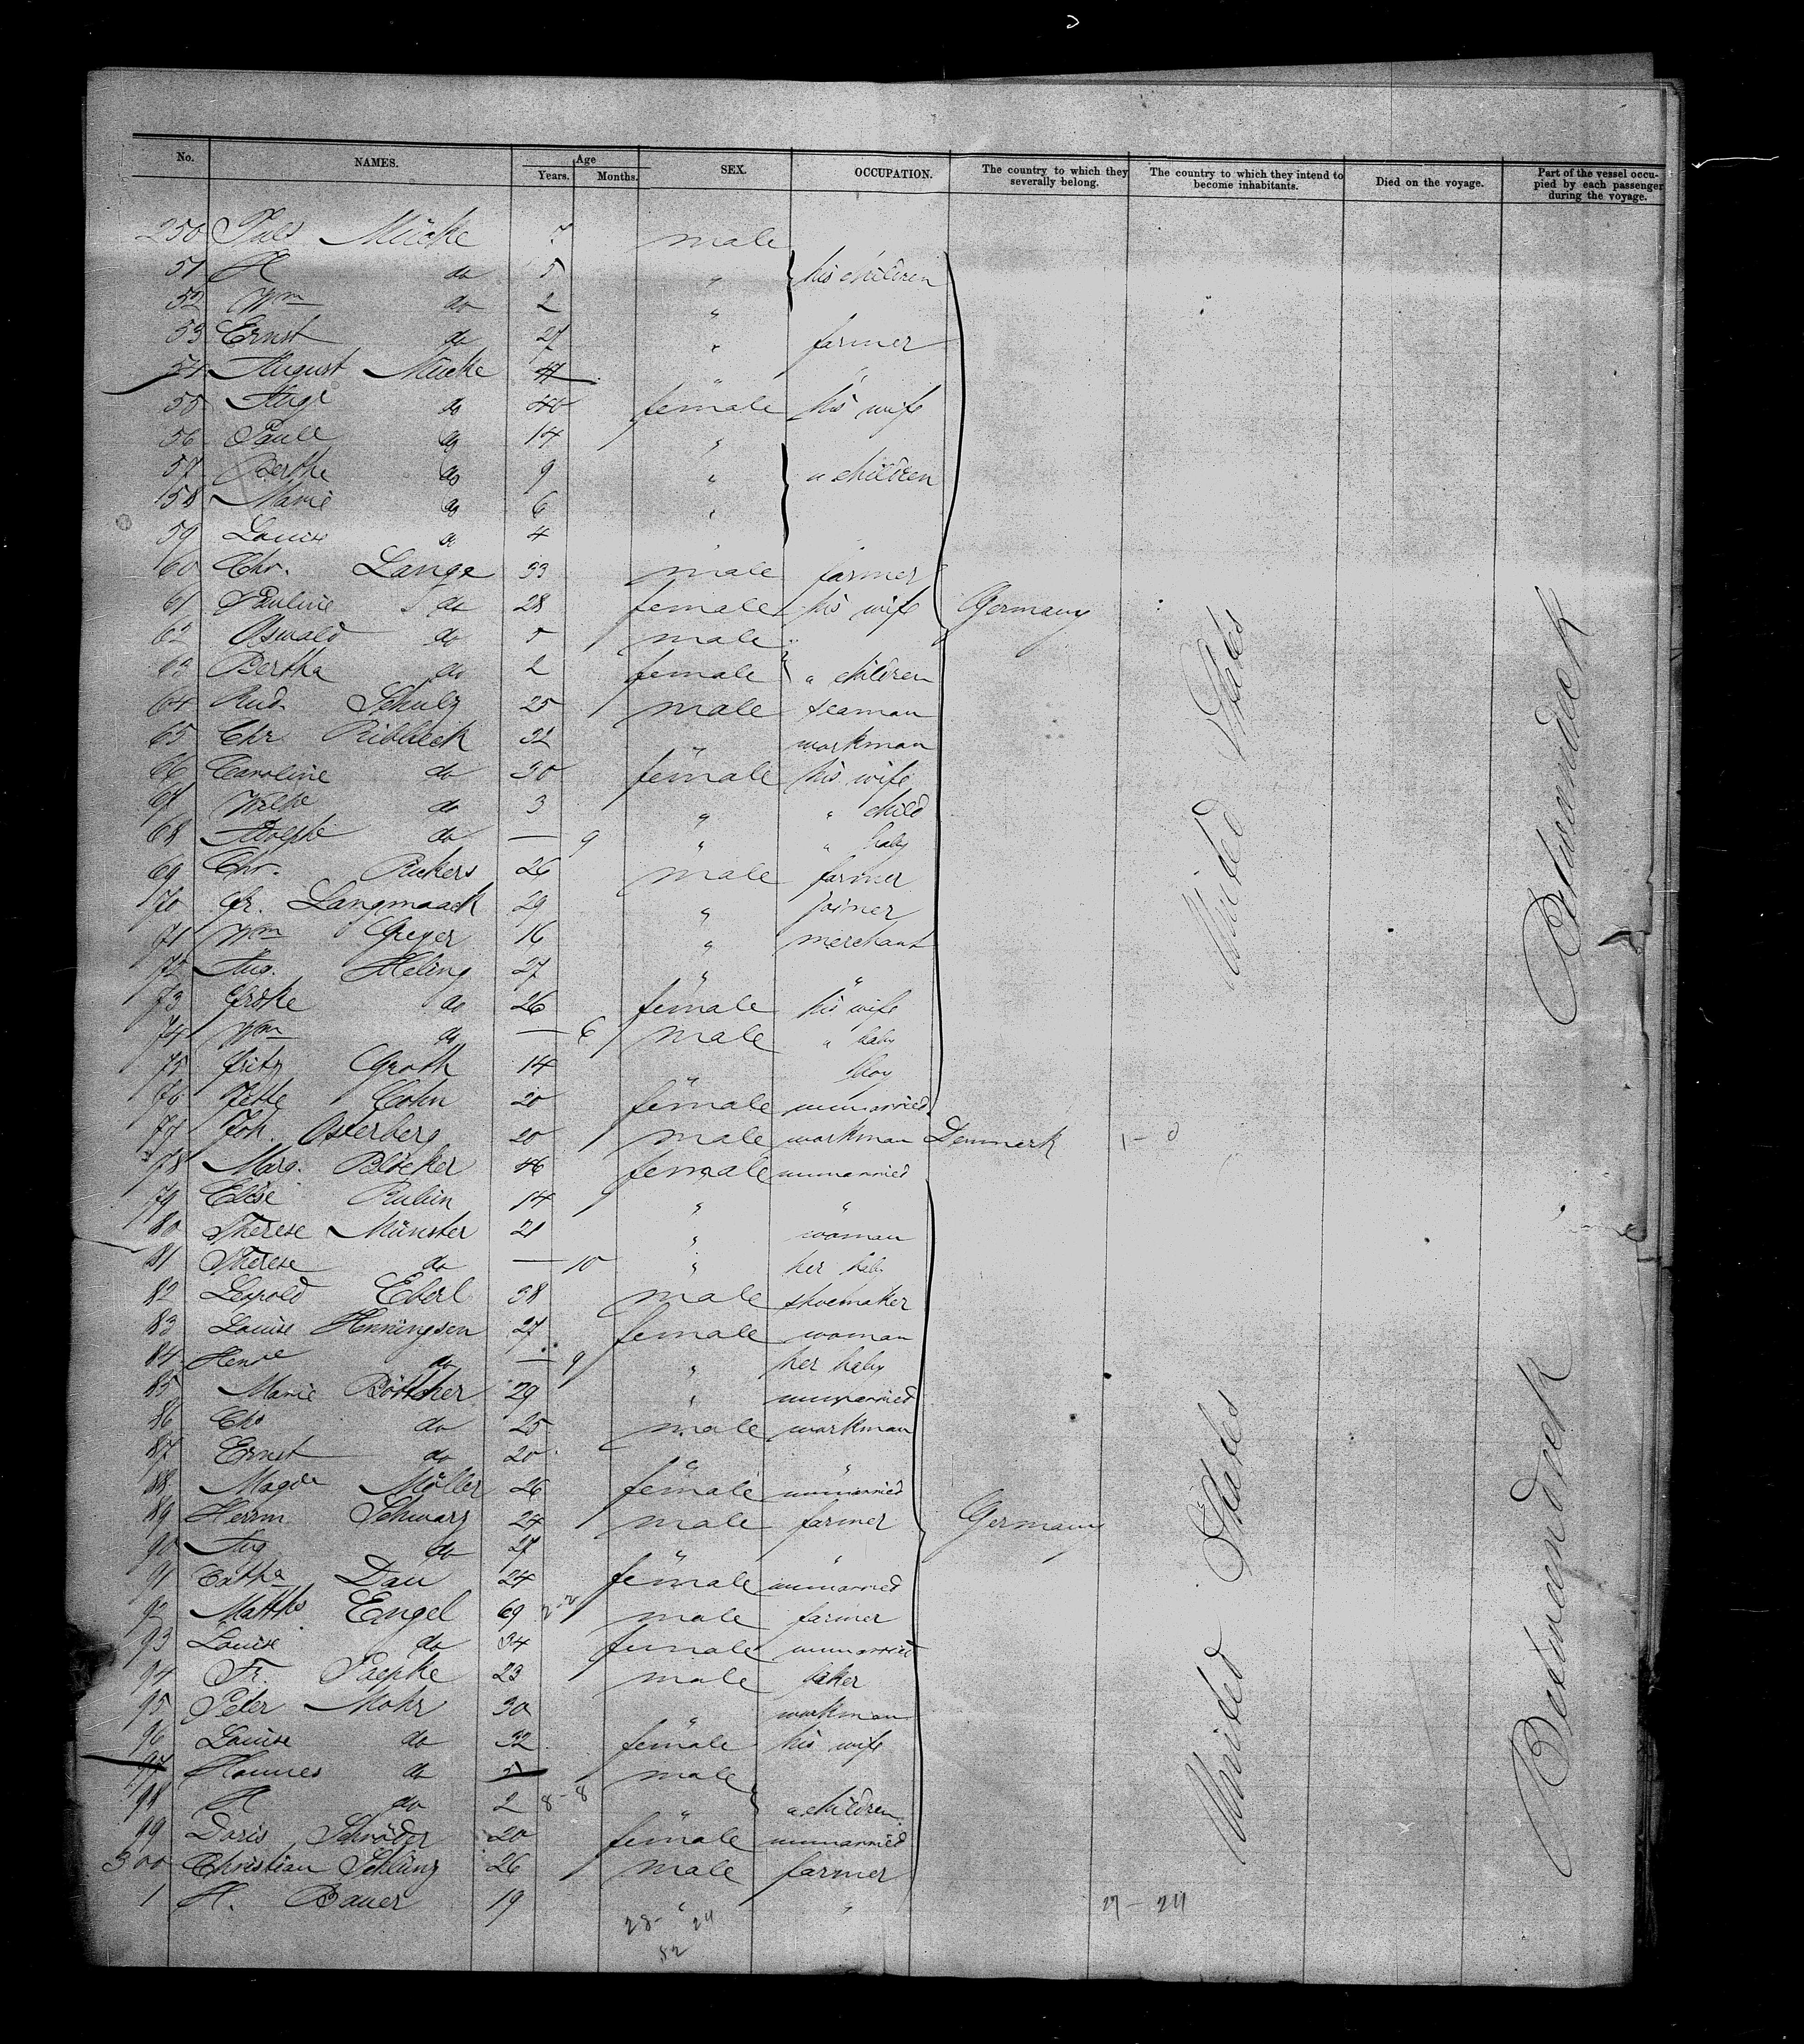 No. NAMES. Age Years. Months. SEX. OCCUPATION. The country to which they severally belong. The country to which they intend to become inhabitants. Died on the voyage. Part of the vessel occupied by each passenger during the voyage.
250 Mücke 7 male
51 H do 5 " } his children
52 Wm do 2 "
53 Ernst do 27 " farmer
54 August Mücke 41 " "
55 Auge do 40 female his wife
56 Paule do 14 "
57 Berthe do 9 " " children
58 Marie do 6 "
59 Louise do 4 "
60 Chr. Lange 33 male farmer
61 Pauline do 28 female his wife Germany
62 Oswald do 5 male "
63 Bertha do 2 female " children
64 Rud. Schulz 25 male seaman
65 Chr Ribbeck 32 " workman
66 Caroline do 30 female his wife
67 Wilhe do 3 " " child
68 Adolphe do — 9 " " baby
69 Chr. Rickers 26 male farmer
70 Fr. Langmaack 29 " joiner
71 Wm Greger 16 " merchant
72 Aug. Heling 27 " "
73 Frdke do 26 female his wife
74 Wm do — 6 male " baby
75 Fritz Groth 14 " boy
76 Jette Cohn 20 female unmarried
77 Joh. Osterberg 20 male workman Denmark
78 Marg. Blöcker 46 female unmarried
79 Elise Rubin 14 " "
80 Therese Münster 21 " woman
81 Therese do — 10 " her baby
82 Leopold Eberl 38 male shoemaker
83 Louise Henningsen 27 female woman
84 Henre do — 9 " her baby
85 Marie Böttcher 29 " unmarried
86 Chr do 25 male workman
87 Ernst do 20 " "
88 Magde Möller 26 female unmarried
89 Herrm Schwarz 24 male farmer Germany
90 Aug do 27 " "
91 Cathe Dau 24 female unmarried
92 Matths Engel 69 male farmer
93 Louise do 34 female unmarried
94 Fr. Paepke 23 male baker
95 Peter Mohr 30 " workman
96 Louise do 32 female his wife
97 Hannes do 5 male
98 H do 2 " " children
99 Doris Schröder 20 female unmarried
300 Christian Schlüng 26 male farmer
1 H. Bauer 19 " "
United States
Betweendeck
United States
Betweendeck
28 - 24
52
27 - 24